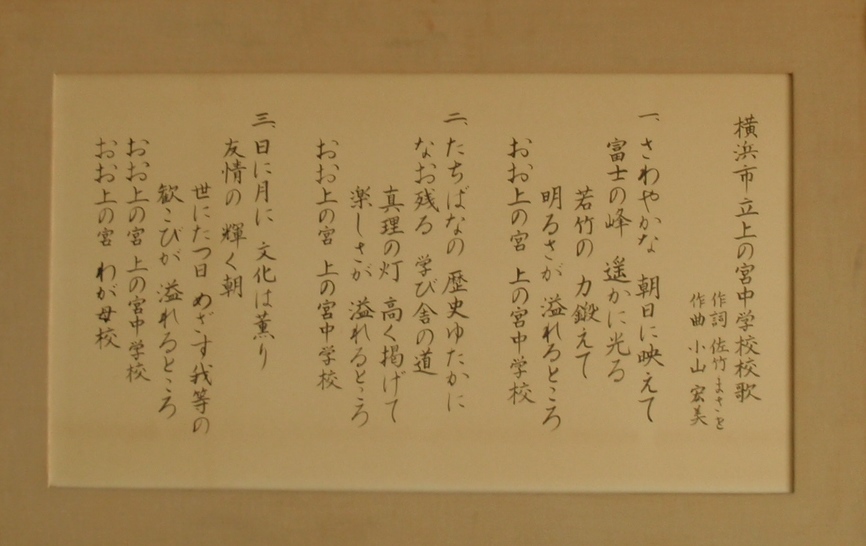 横浜市立上の宮中学校校歌
作詞 佐竹 まさを
作曲 小山 宏美
一、さわやかな 朝日に映えて
富士の峰 遥かに光る
若竹の 力鍛えて
明るさが 溢れるところ
おお上の宮 上の宮中学校
二、たちばなの 歴史ゆたかに
なお残る 学び舎の道
真理の灯 高く掲げて
楽しさが 溢れるところ
おお上の宮 上の宮中学校
三、日に月に 文化は薫り
友情の 輝く朝
世にたつ日 めざす我等の
歓こびが 溢れるところ
おお上の宮 上の宮中学校
おお上の宮 わが母校